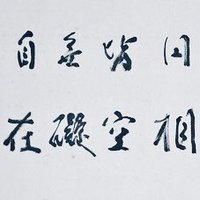 四相
皆空
無礙
自在